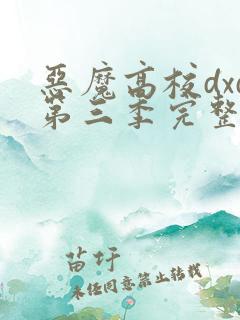 惡魔高校dxd
第三季完整
苗圩
未经同意禁止转载